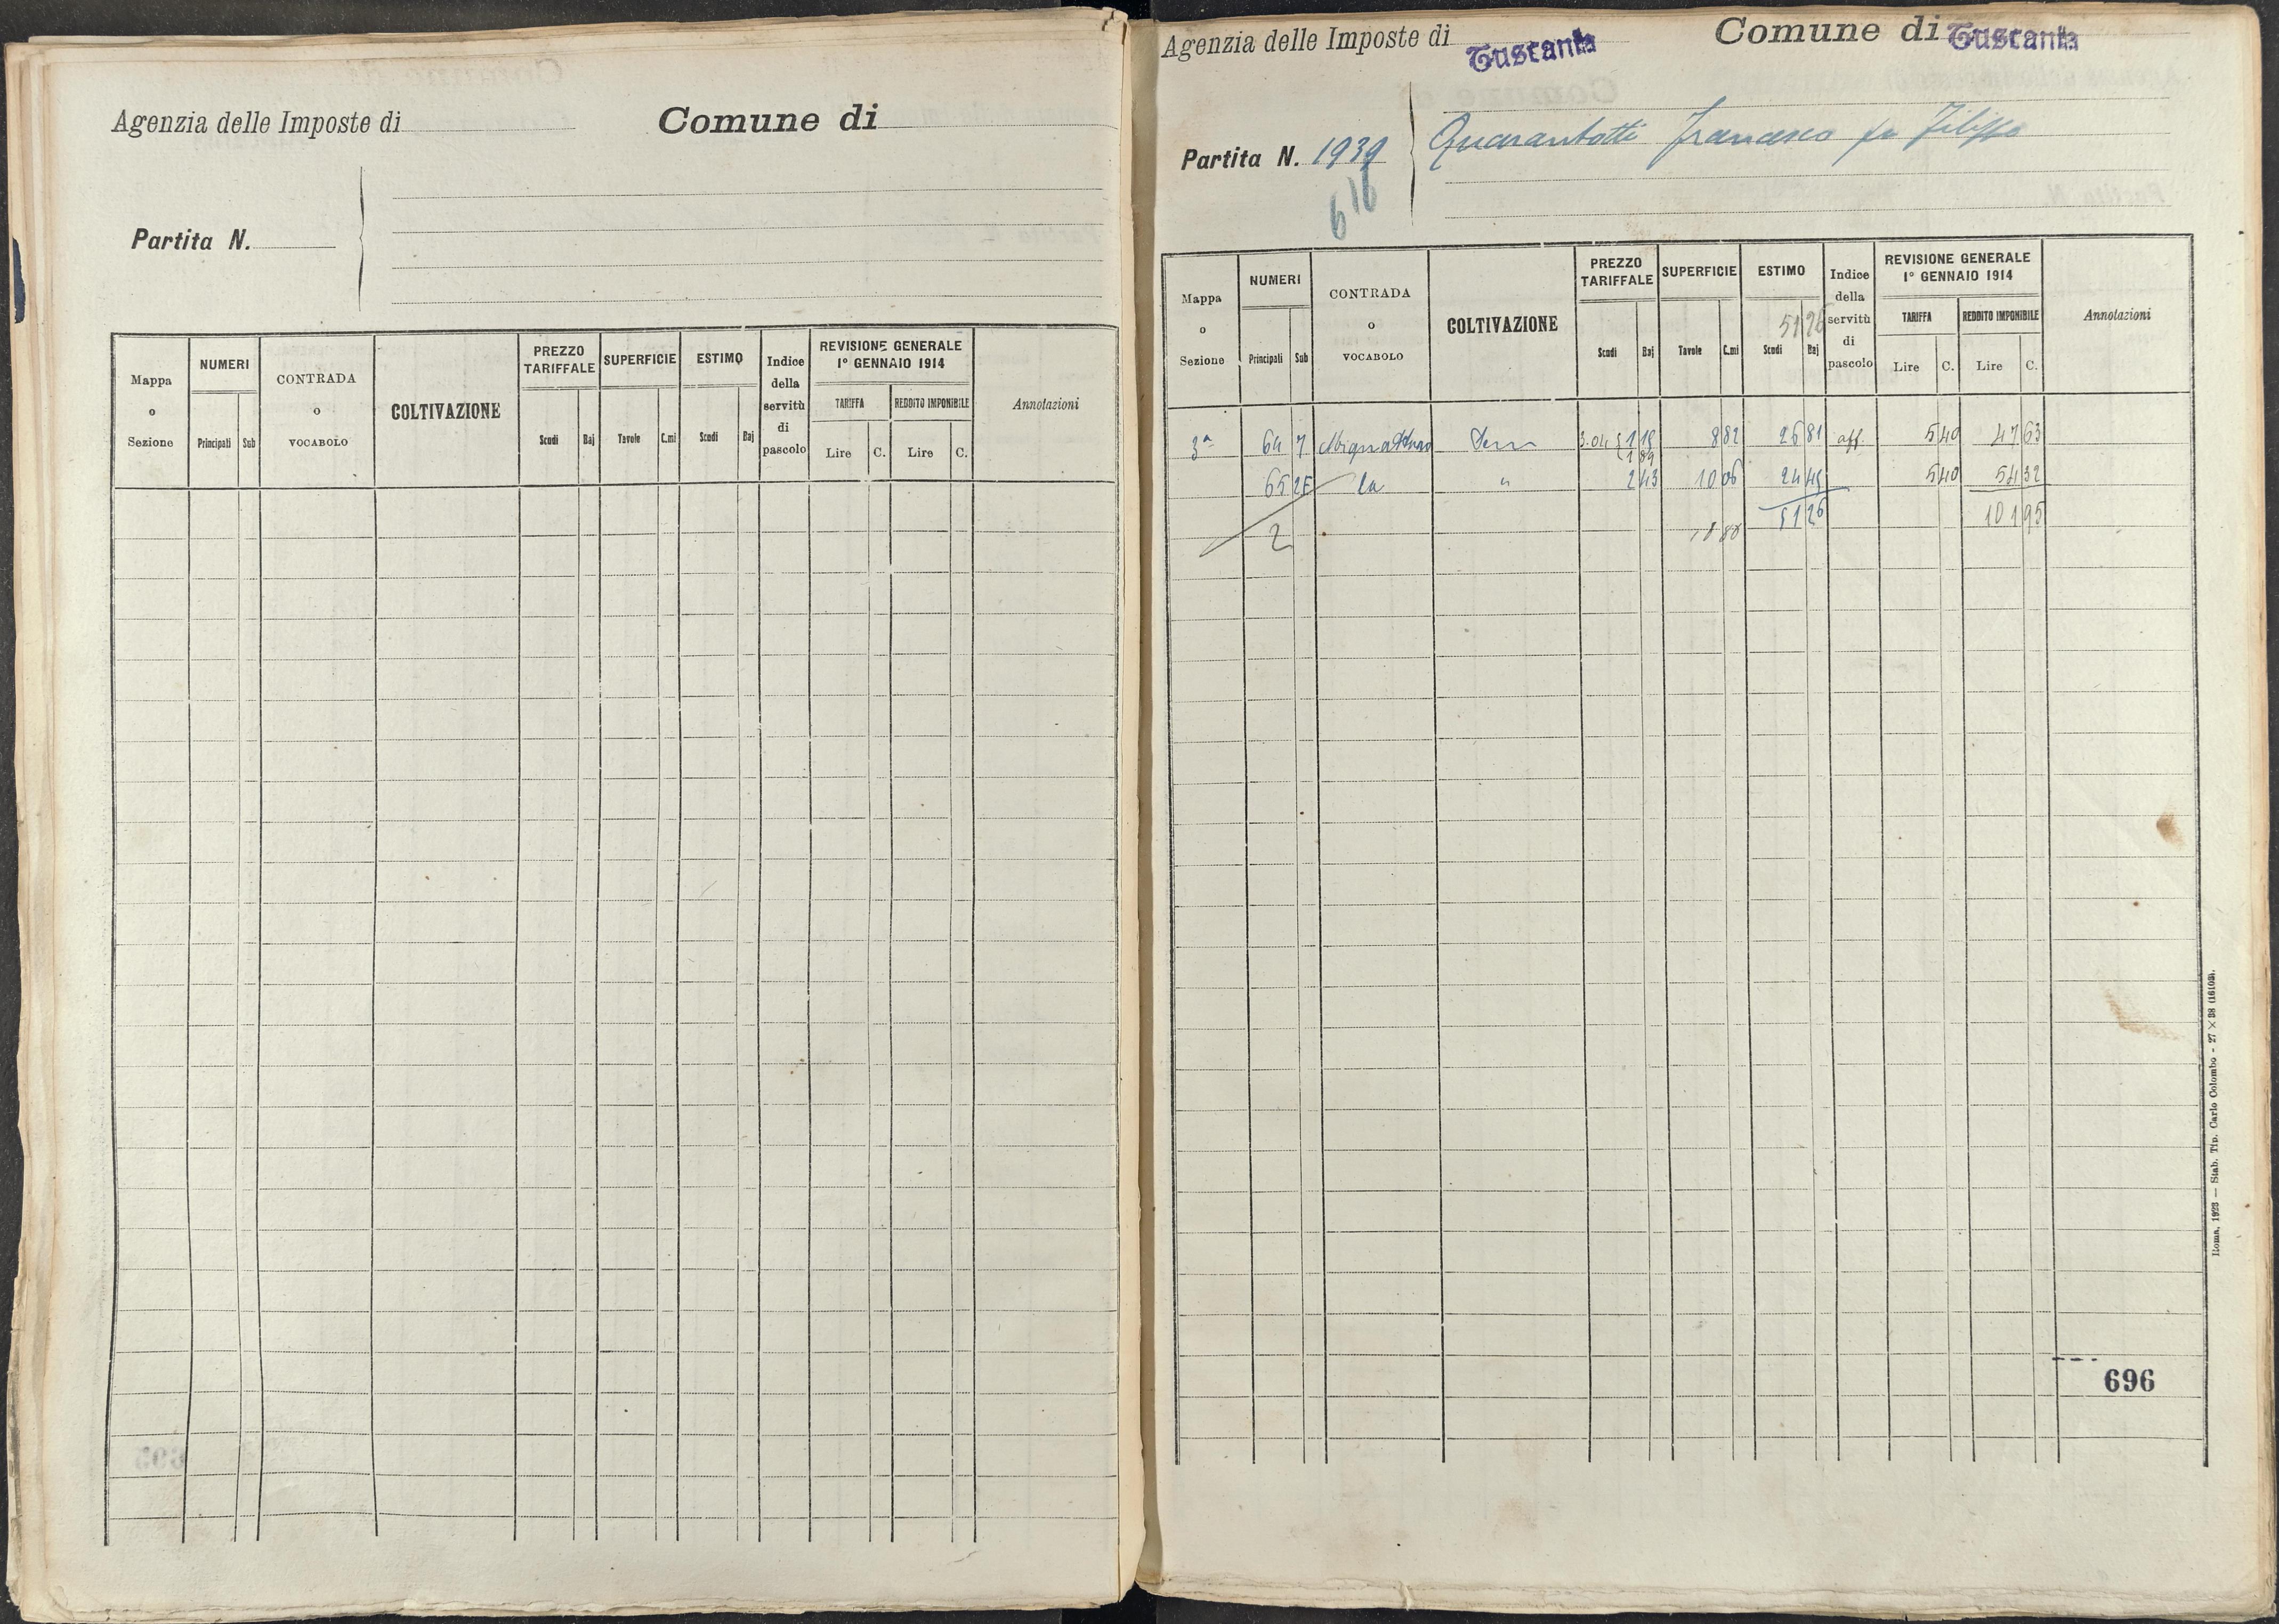 Agenzia delle Imposte di
Comune di
Partita N.
Mappa o Sezione
NUMERI
Principali Sub
CONTRADA o VOCABOLO
COLTIVAZIONE
PREZZO TARIFFALE
Scudi Baj
SUPERFICIE
Tavole C.mi
ESTIMO
Scudi Baj
Indice della servitù di pascolo
REVISIONE GENERALE
1° GENNAIO 1914
TARIFFA
Lire C.
REDDITO IMPONIBILE
Lire C.
Annotazioni
Agenzia delle Imposte di Tuscania
Comune di Tuscania
Partita N. 1939
616
Quarantotti Francesco fu Filippo
Mappa o Sezione
NUMERI
Principali Sub
CONTRADA o VOCABOLO
COLTIVAZIONE
PREZZO TARIFFALE
Scudi Baj
SUPERFICIE
Tavole C.mi
ESTIMO
51 26
Scudi Baj
Indice della servitù di pascolo
REVISIONE GENERALE
1° GENNAIO 1914
TARIFFA
Lire C.
REDDITO IMPONIBILE
Lire C.
Annotazioni
3ª 64 7 3.04 1 15 8 82 26 81 aff. 5 40 47 63
1 89
65 la " 2 43 10 06 24 45 5 40 54 32
2 51 26 101 95
696
Roma, 1923 — Stab. Tip. Carlo Colombo - 27 × 38